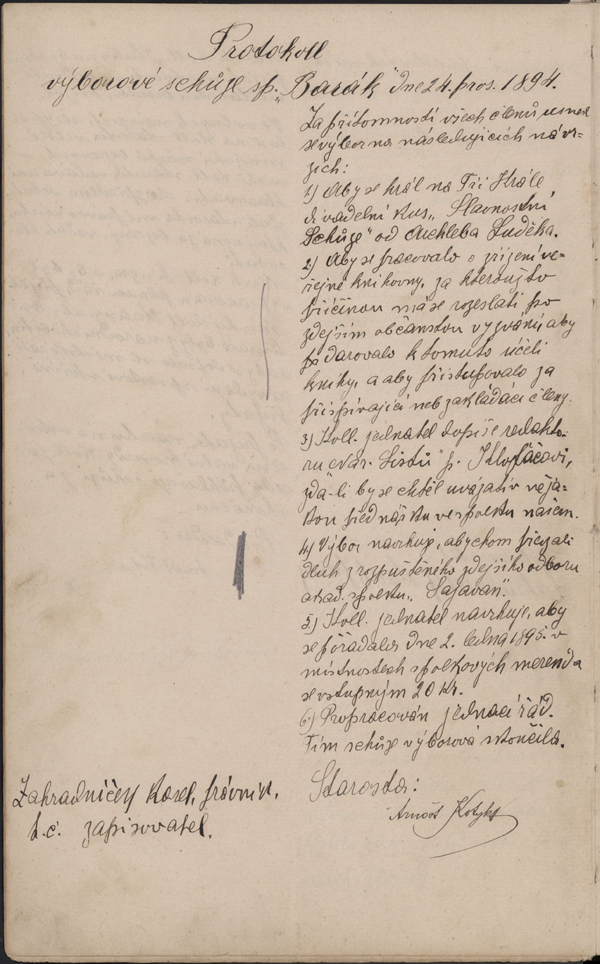 Protokoll
výborové schůze sp. „Barák" dne 24. pros. 1894.
Za přítomnosti všech členů usnesl
se výbor na následujících návr-
zích:
1) Aby se hrál na Tři Krále
divadelní kus „Slavnostní
Schůze" od Archleba Luděka.
2) Aby se pracovalo o zřízení ve-
řejné knihovny, za kteroužto
příčinou má se rozeslati po
zdejším občanstvu vyzvání, aby
darovalo k tomuto účeli
knihy, a aby přistupovalo za
přispívající neb zakládací členy.
3) Koll. jednatel dopíše redakto-
ru „Nár. Listů" p. Klofáčovi,
zda-li by se chtěl uvázati v něja-
kou přednášku ve spolku našem.
4) Výbor navrhuje, abychom převzali
dluh z rozpuštěného zdejšího odboru
akad. spolku „Sázavan".
5.) Koll. jednatel navrhuje, aby
se pořádala dne 2. ledna 1895 v
místnostech spolkových merenda
se vstupným 20 kr.
6) Propracován jednací řád.
Tím schůze výborová skončila.
Starosta:
Arnošt Kotyk
Zahradníček Karel, právník,
t. č. zapisovatel.